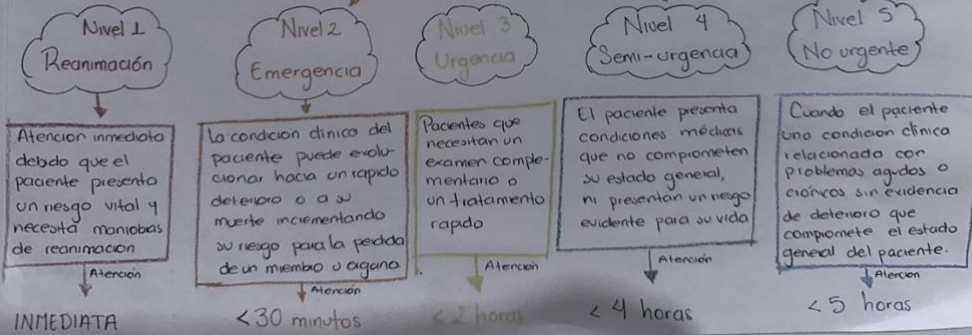 Nivel 1
Reanimación
Atención inmediata
debido que el
paciente presenta
un riesgo vital y
necesita maniobas
de reanimación
Atención
INMEDIATA
Nivel 2
Emergencia
La condición clínica del
paciente puede evolu-
cionar hacia un rapido
deterioro o a su
muerte incrementando
su riesgo para la perdida
de un miembro u organo
Atención
< 30 minutos
Nivel 3
Urgencia
Pacientes que
necesitan un
examen comple-
mentario o
un tratamiento
rapido
Atención
< 2 horas
Nivel 4
Semi-urgencia
El paciente presenta
condiciones médicas
que no comprometen
su estado general,
ni presentan un riesgo
evidente para su vida
Atención
< 4 horas
Nivel 5
No urgente
Cuando el paciente
una condición clínica
relacionado con
problemas agudos o
crónicos sin evidencia
de deterioro que
compromete el estado
general del paciente.
Atención
< 5 horas